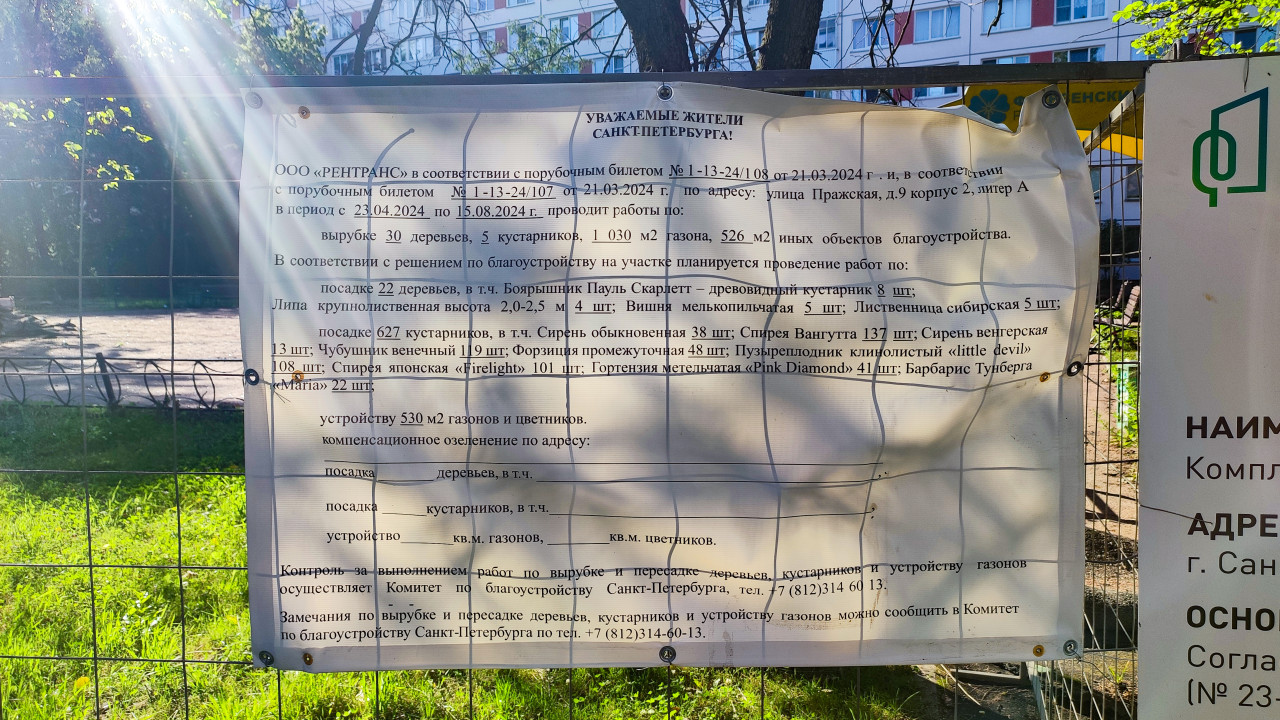 УВАЖАЕМЫЕ ЖИТЕЛИ
САНКТ-ПЕТЕРБУРГА!
ООО «РЕНТРАНС» в соответствии с порубочным билетом № 1-13-24/108 от 21.03.2024 г. и, в соответствии
с порубочным билетом № 1-13-24/107 от 21.03.2024 г. по адресу: улица Пражская, д.9 корпус 2, литер А
в период с 23.04.2024 по 15.08.2024 г. проводит работы по:
вырубке 30 деревьев, 5 кустарников, 1 030 м2 газона, 526 м2 иных объектов благоустройства.
В соответствии с решением по благоустройству на участке планируется проведение работ по:
посадке 22 деревьев, в т.ч. Боярышник Пауль Скарлетт – древовидный кустарник 8 шт;
Липа крупнолиственная высота 2,0-2,5 м 4 шт; Вишня мелькопильчатая 5 шт; Лиственница сибирская 5 шт;
посадке 627 кустарников, в т.ч. Сирень обыкновенная 38 шт; Спирея Вангутта 137 шт; Сирень венгерская
13 шт; Чубушник венечный 119 шт; Форзиция промежуточная 48 шт; Пузыреплодник клинолистый «little devil»
108 шт; Спирея японская «Firelight» 101 шт; Гортензия метельчатая «Pink Diamond» 41 шт; Барбарис Тунберга
«Maria» 22 шт;
устройству 530 м2 газонов и цветников.
компенсационное озеленение по адресу:
посадка______ деревьев, в т.ч.______
посадка ______кустарников, в т.ч.______
устройство______кв.м. газонов, ______кв.м. цветников.
Контроль за выполнением работ по вырубке и пересадке деревьев, кустарников и устройству газонов
осуществляет Комитет по благоустройству Санкт-Петербурга, тел. +7 (812)314 60 13.
Замечания по вырубке и пересадке деревьев, кустарников и устройству газонов можно сообщить в Комитет
по благоустройству Санкт-Петербурга по тел. +7 (812)314-60-13.
НАИМ
Компл
АДРЕ
г. Сан
ОСНО
Согла
(№ 23-